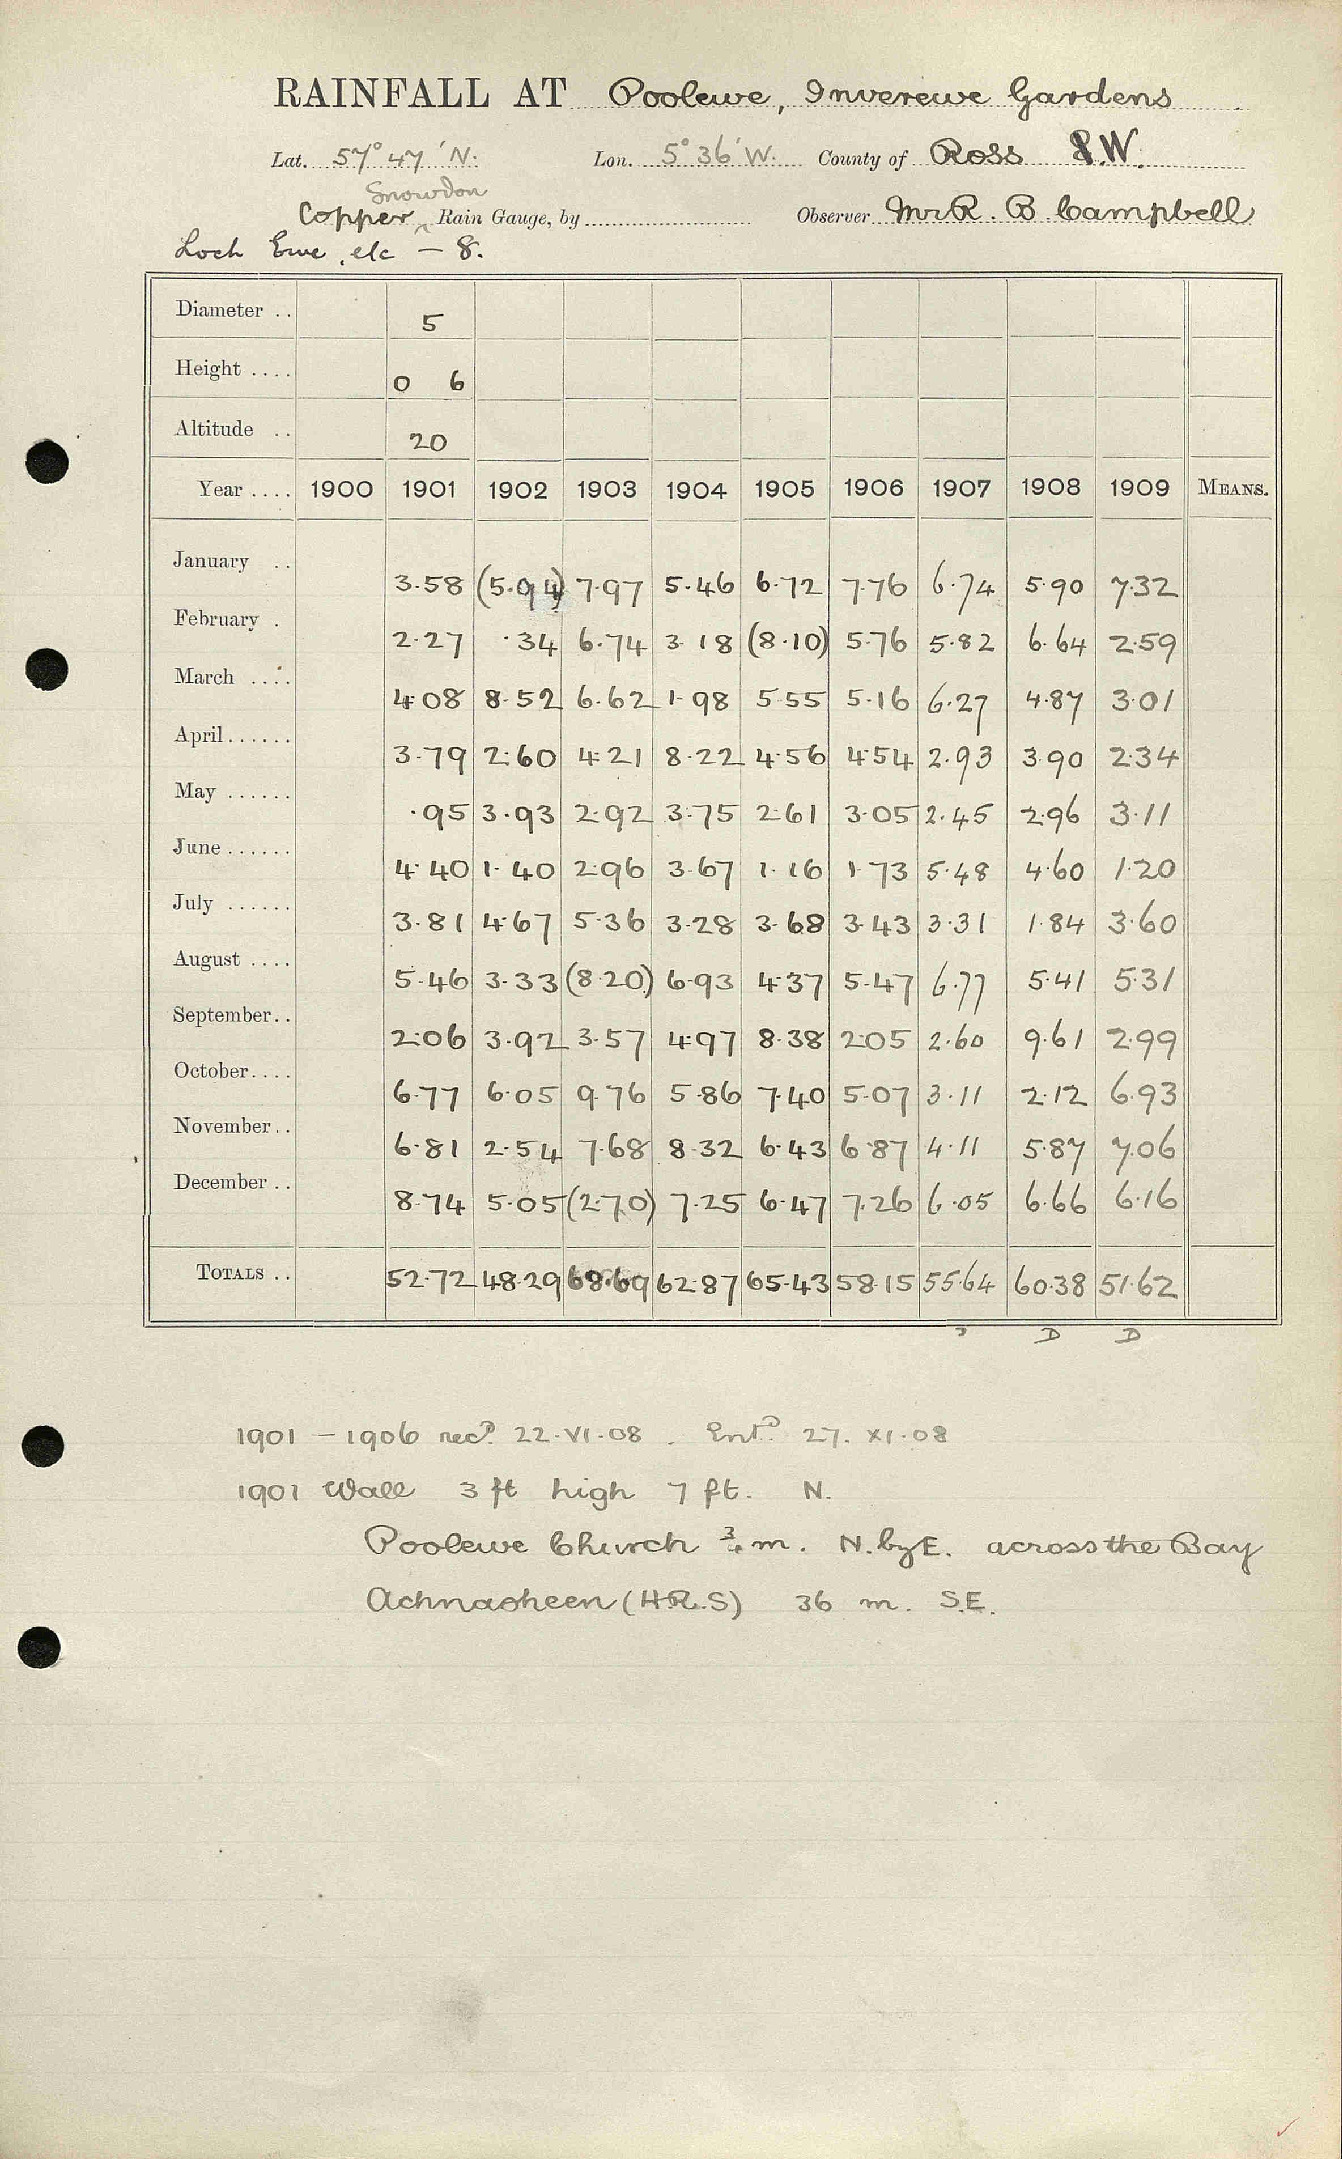 RAINFALL AT Poolewe, Inverewe Gardens
Lat. 57° 47' N. Lon. 5° 36' W. County of Ross W.
Snowdon
Copper ^ Rain Gauge, by Observer Mr R. B Campbell
Loch Ewe, etc — 8.
Diameter .. 5
Height .... 0 6
Altitude .. 20
Year .... 1900 1901 1902 1903 1904 1905 1906 1907 1908 1909 MEANS.
January .. 3.58 (5.94) 7.97 5.46 6.72 7.76 6.74 5.90 7.32
February . 2.27 .34 6.74 3.18 (8.10) 5.76 5.82 6.64 2.59
March .... 4.08 8.52 6.62 1.98 5.55 5.16 6.27 4.87 3.01
April...... 3.79 2.60 4.21 8.22 4.56 4.54 2.93 3.90 2.34
May ...... .95 3.93 2.92 3.75 2.61 3.05 2.45 2.96 3.11
June ...... 4.40 1.40 2.96 3.67 1.16 1.73 5.48 4.60 1.20
July ...... 3.81 4.67 5.36 3.28 3.68 3.43 3.31 1.84 3.60
August .... 5.46 3.33 (8.20) 6.93 4.37 5.47 6.77 5.41 5.31
September.. 2.06 3.92 3.57 4.97 8.38 2.05 2.60 9.61 2.99
October.... 6.77 6.05 9.76 5.86 7.40 5.07 3.11 2.12 6.93
November.. 6.81 2.54 7.68 8.32 6.43 6.87 4.11 5.87 7.06
December .. 8.74 5.05 (2.70) 7.25 6.47 7.26 6.05 6.66 6.16
TOTALS .. 52.72 48.29 68.69 62.87 65.43 58.15 55.64 60.38 51.62
D D
1901 — 1906 recd. 22.VI.08. Entd. 27.XI.08
1901 Wall 3 ft high 7 ft. N.
Poolewe Church ¾ m. N. by E. across the Bay
Achnasheen (H.R.S) 36 m. S.E.